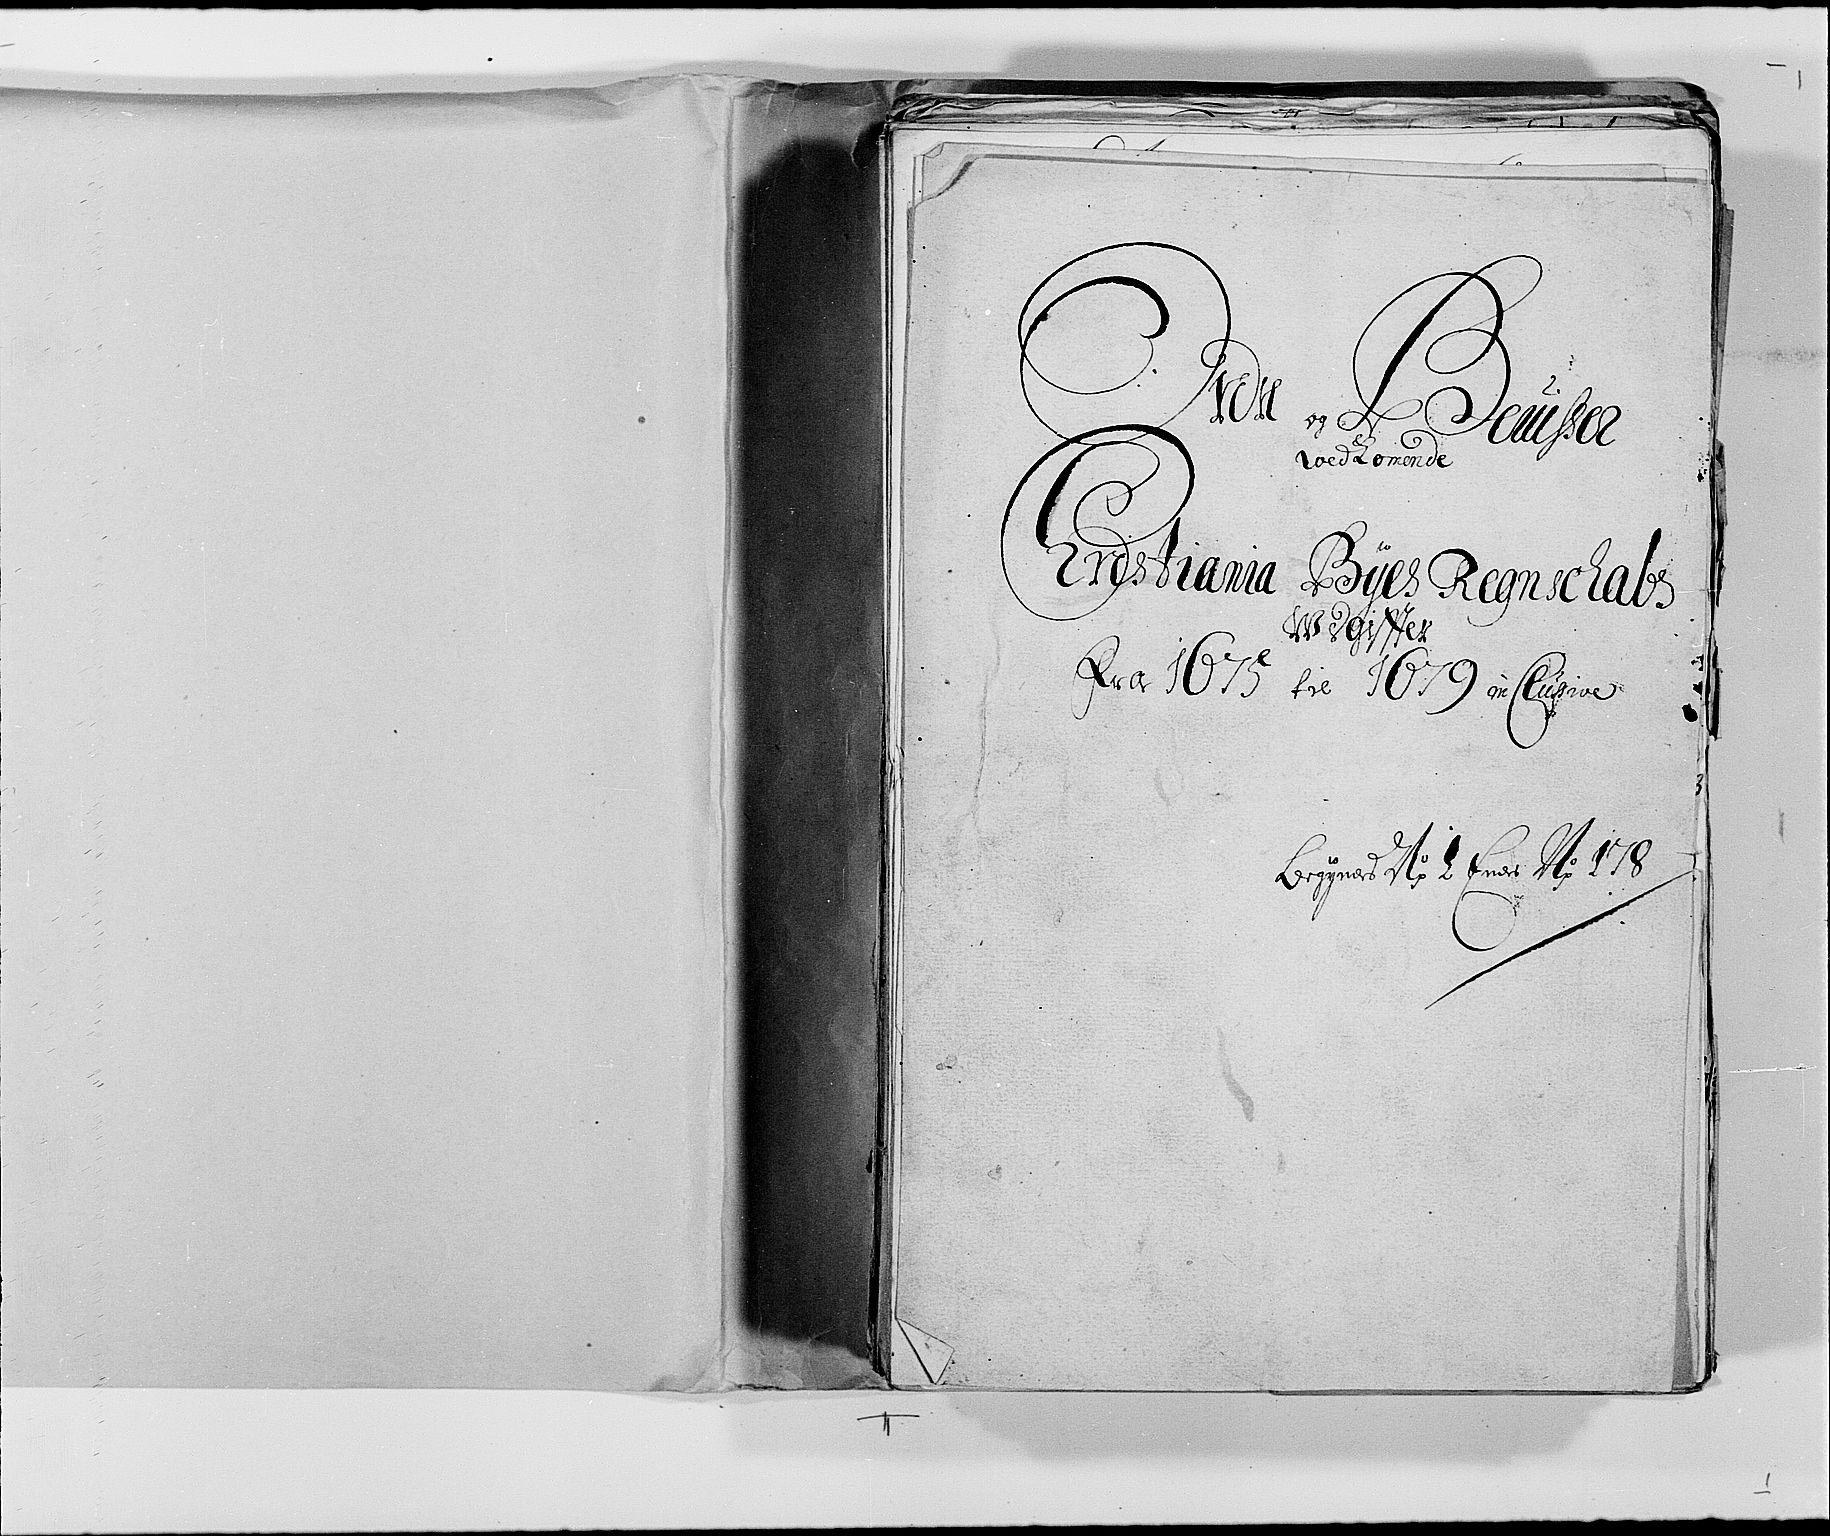 Ordr og Beuisser
wedkomende
Cristiania Byes Regnschabs
Wdgiffter
Fra 1675 til 1679 in Clusive
begynder No 1 Ender No 178